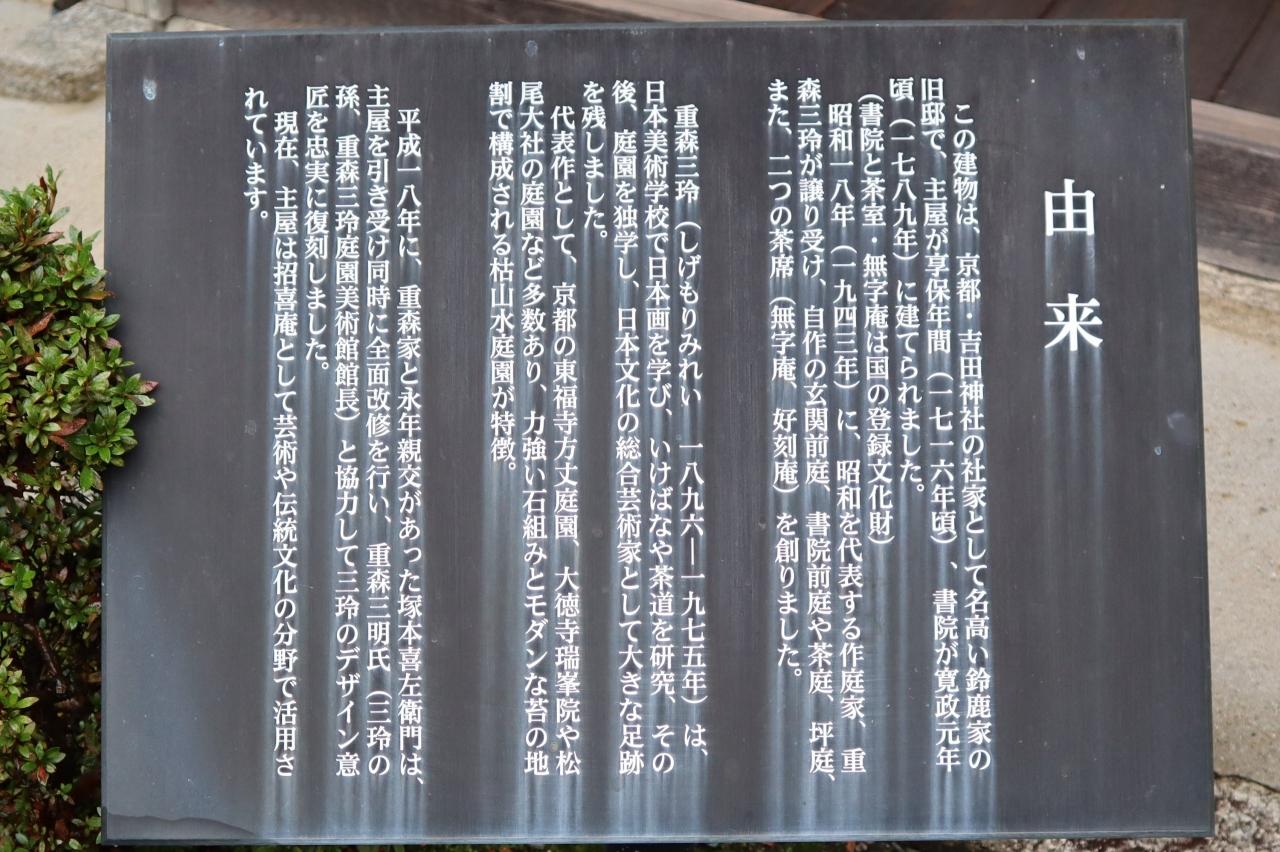 由来
この建物は、京都・吉田神社の社家として名高い鈴鹿家の
旧邸で、主屋が享保年間（一七一六年頃）、書院が寛政元年
頃（一七八九年）に建てられました。
（書院と茶室・無字庵は国の登録文化財）
昭和一八年（一九四三年）に、昭和を代表する作庭家、重
森三玲が譲り受け、自作の玄関前庭、書院前庭や茶庭、坪庭、
また、二つの茶席（無字庵、好刻庵）を創りました。
重森三玲（しげもりみれい　一八九六―一九七五年）は、
日本美術学校で日本画を学び、いけばなや茶道を研究、その
後、庭園を独学し、日本文化の総合芸術家として大きな足跡
を残しました。
代表作として、京都の東福寺方丈庭園、大徳寺瑞峯院や松
尾大社の庭園など多数あり、力強い石組みとモダンな苔の地
割で構成される枯山水庭園が特徴。
平成一八年に、重森家と永年親交があった塚本喜左衛門は、
主屋を引き受け同時に全面改修を行い、重森三明氏（三玲の
孫、重森三玲庭園美術館館長）と協力して三玲のデザイン意
匠を忠実に復刻しました。
現在、主屋は招喜庵として芸術や伝統文化の分野で活用さ
れています。